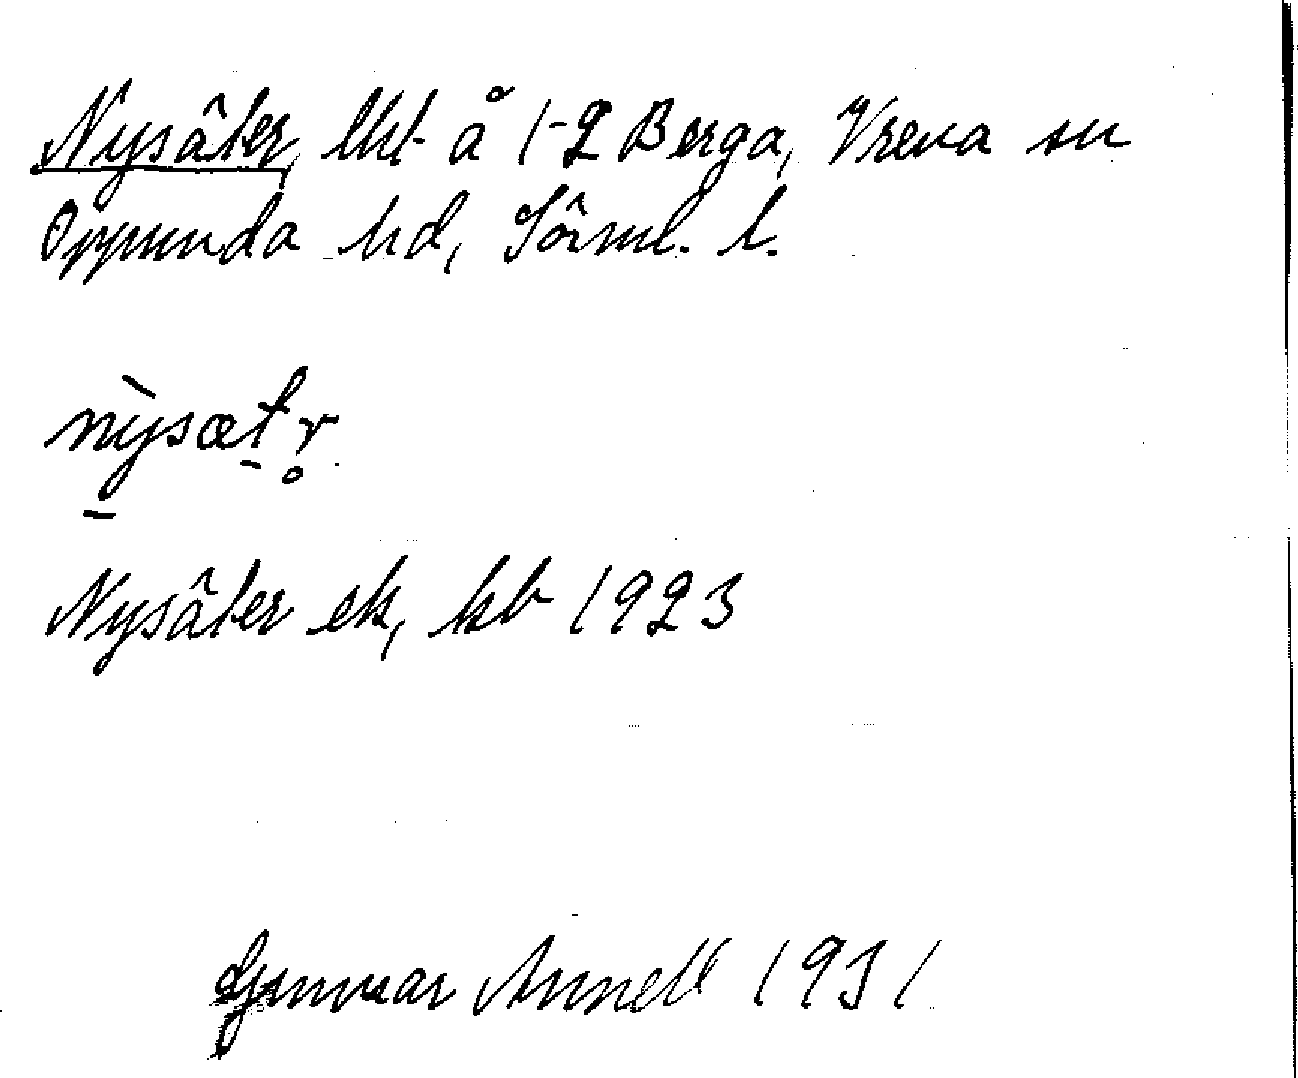 Nysäter, lht å 1-2 Berga, Vrena sn
Oppunda hd, Sörml. l.
nỳsætr̥
Nysäter ek, kb 1923
Gunnar Annell 1931